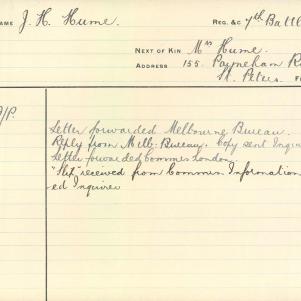 NAME J. H. Hume. REG. &C 7th Battl
NEXT OF KIN Mrs Hume.
ADDRESS 155. Payneham R
St. Peters.
/P.
Letter forwarded Melbourne Bureau.
Reply from Melb. Bureau. Copy sent Inquir
Letter forwarded Commrs London.
"Slip" received from Commrs Information
ed Inquirer